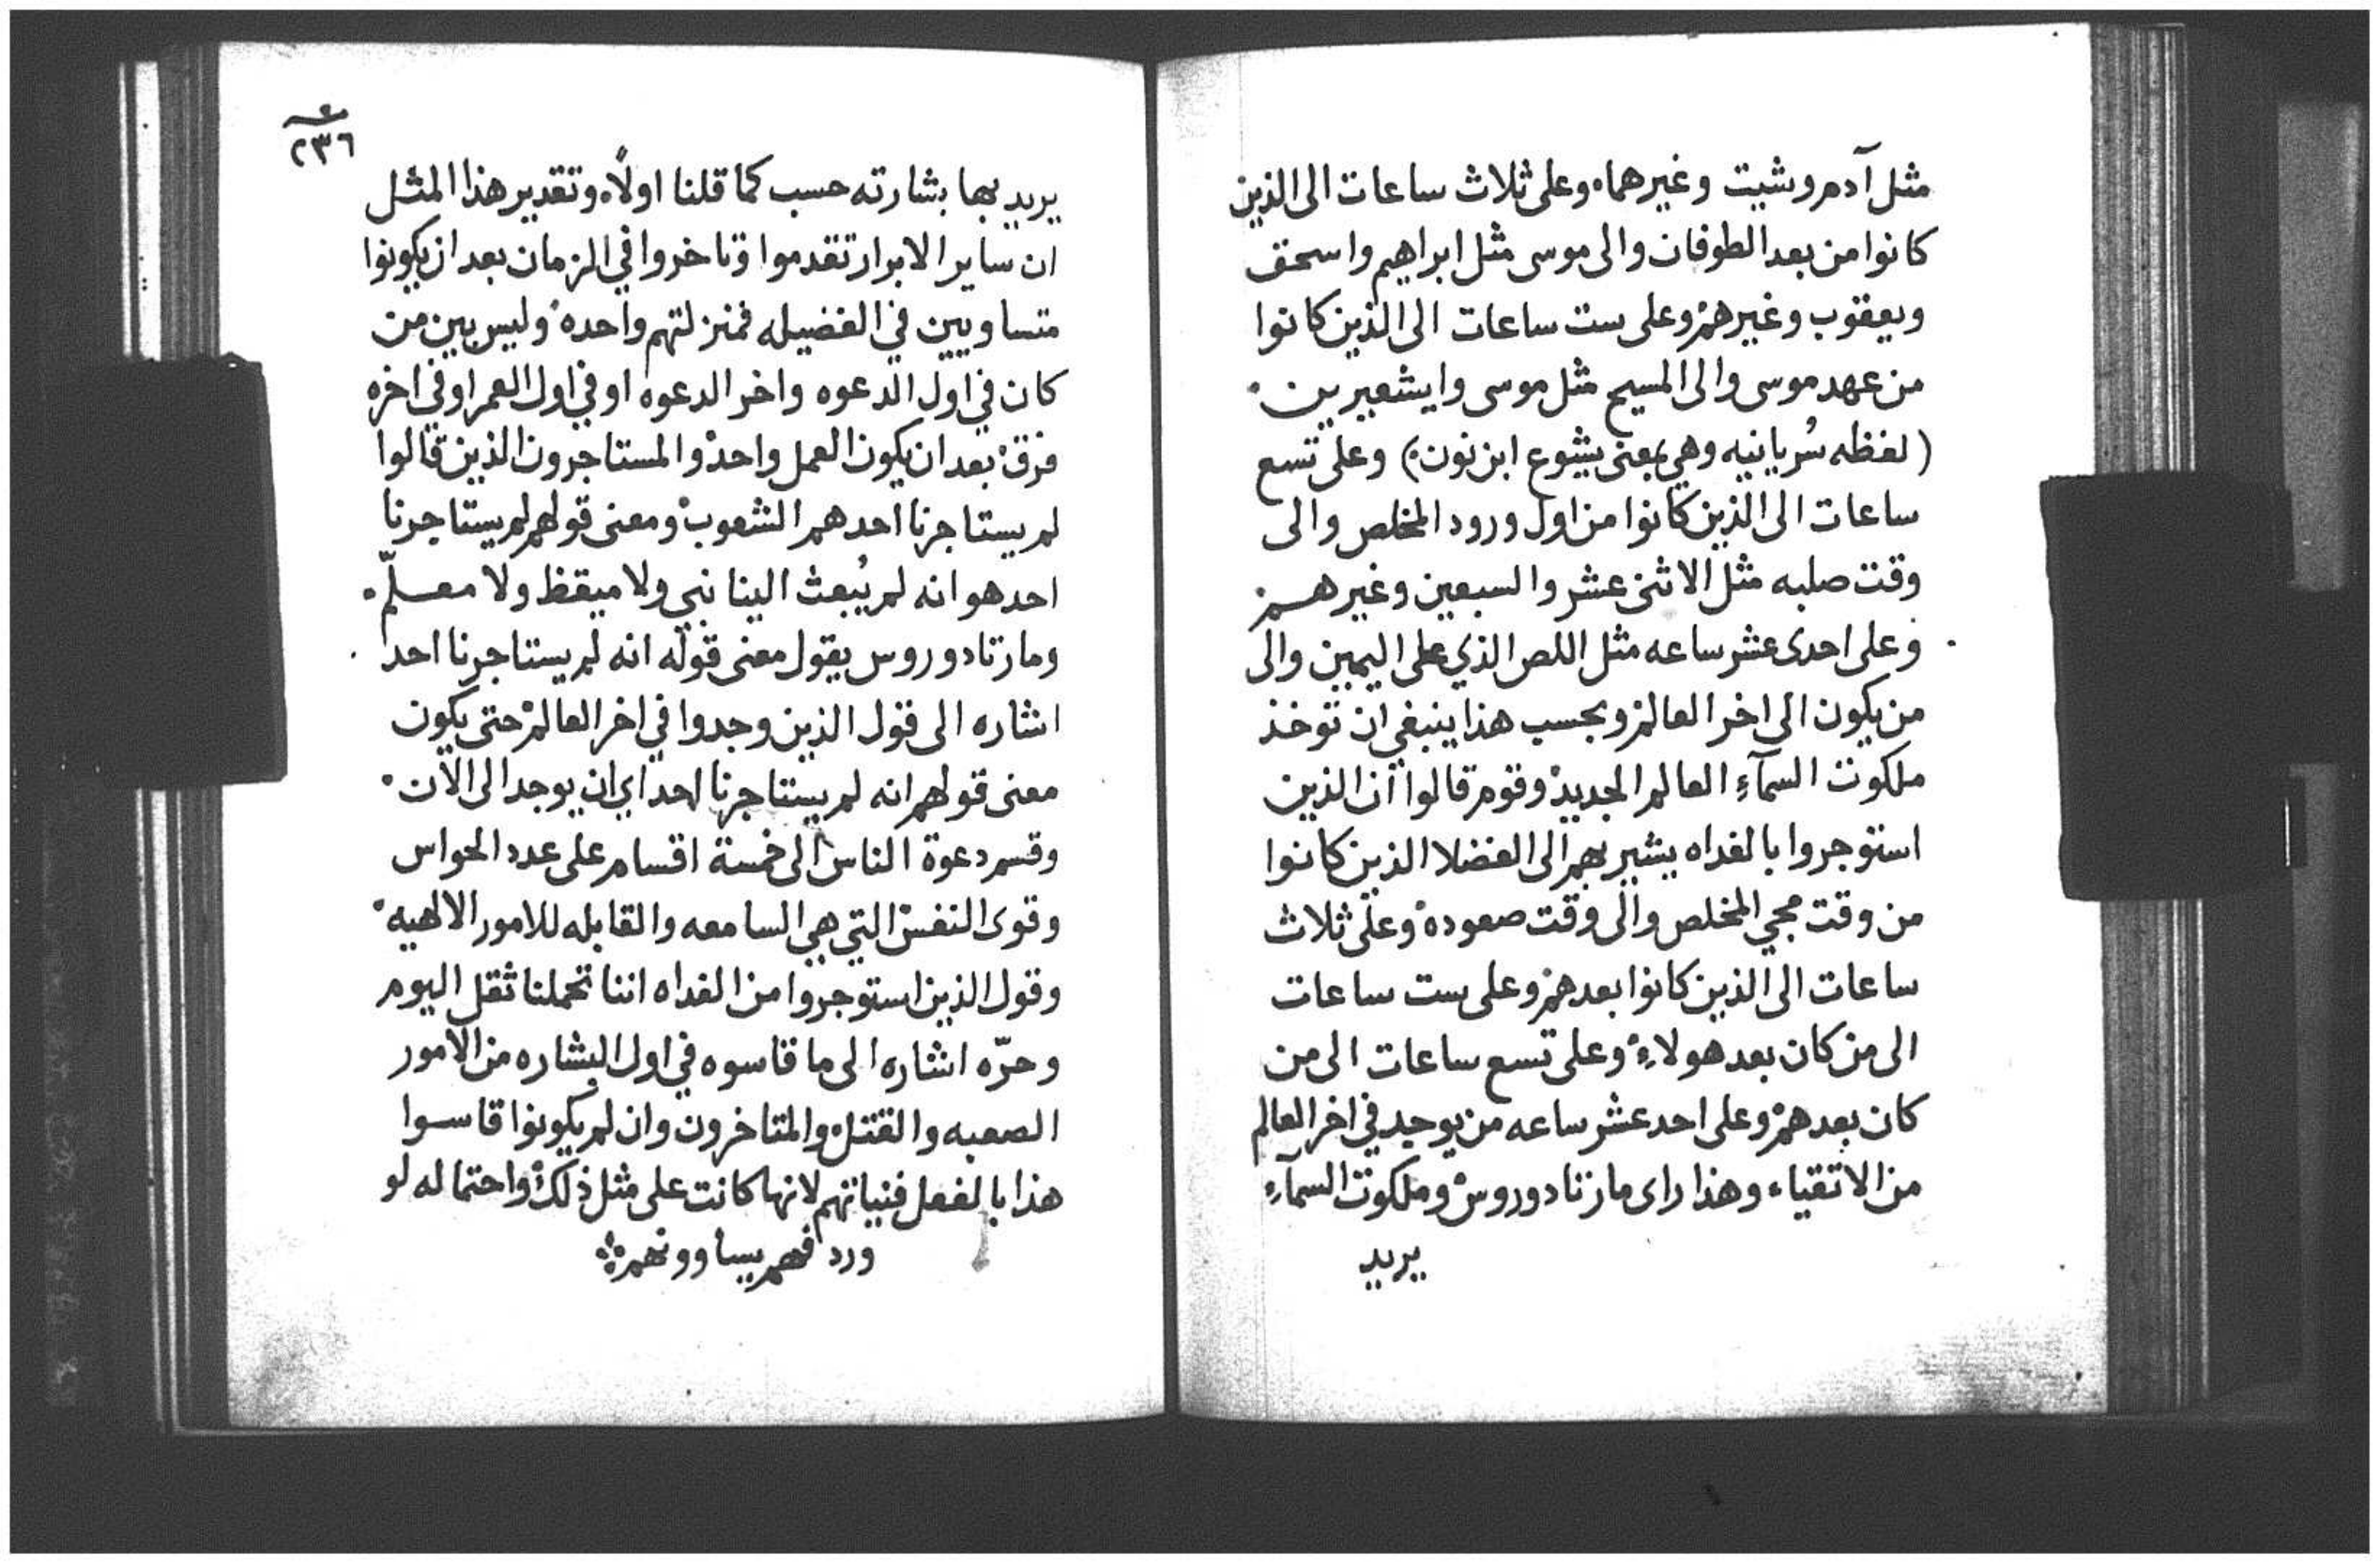 مثل آدم وشيت وغيرهما، وعلى ثلاث ساعات الى الذين
كانوا من بعد الطوفان والى موسى مثل ابراهيم واسحق
ويعقوب وغيرهم وعلى ست ساعات الى الذين كانوا
من عهد موسى والى المسيح مثل موسى وايشعبرين.
(لفظه سُريانيه وهي بمعنى يشوع ابن نون) وعلى تسع
ساعات الى الذين كانوا من اول ورود المخلص والى
وقت صلبه مثل الاثنى عشر والسبعين وغيرهم
وعلى احدى عشر ساعه مثل اللص الذي على اليمين والى
من يكون الى اخر العالم وبحسب هذا ينبغي ان توخذ
ملكوت السمآءِ العالم الجديد وقوم قالوا ان الذين
استوجروا بالغداه يشير بهم الى الفضلا الذين كانوا
من وقت مجي المخلص والى وقت صعوده وعلى ثلاث
ساعات الى الذين كانوا بعدهم وعلى ست ساعات
الى من كان بعد هولاءِ وعلى تسع ساعات الى من
كان بعدهم وعلى احد عشر ساعه من يوجد في اخر العالم
من الاتقياء وهذا راى مار تادوروس وملكوت السمآءِ
يريد
٢٣٦
يريد بها بشارته حسب كما قلنا اولاً، وتقدير هذا المثل
ان ساير الابرار تقدموا وتاخروا في الزمان بعد ان يكونوا
متساويين في الفضيله فمنزلتهم واحده وليس بين من
كان في اول الدعوه واخر الدعوه او في اول العمر او في اخره
فرق بعد ان يكون العمل واحد والمستاجرون الذين قالوا
لم يستاجرنا احد هم الشعوب ومعنى قولهم لم يستاجرنا
احد هو انه لم يُبعث الينا نبي ولا ميقظ ولا معلّم.
ومار تادوروس يقول معنى قوله انه لم يستاجرنا احد
اشاره الى قول الذين وجدوا في اخر العالم حتى يكون
معنى قولهم انه لم يستاجرنا احد اي ان يوجد الى الآن.
وقسم دعوة الناس الى خمسة اقسام على عدد الحواس
وقوى النفس التي هي السامعه والقابله للامور الالهيه
وقول الذين استوجروا من الغداه اننا تحملنا ثقل اليوم
وحرّه اشاره الى ما قاسوه في اول البشاره من الامور
الصعبه والقتل والمتاخرون وان لم يكونوا قاسوا
هذا بالفعل فنياتهم لانها كانت على مثل ذلك واحتماله لو
ورد فهم يساوونهم